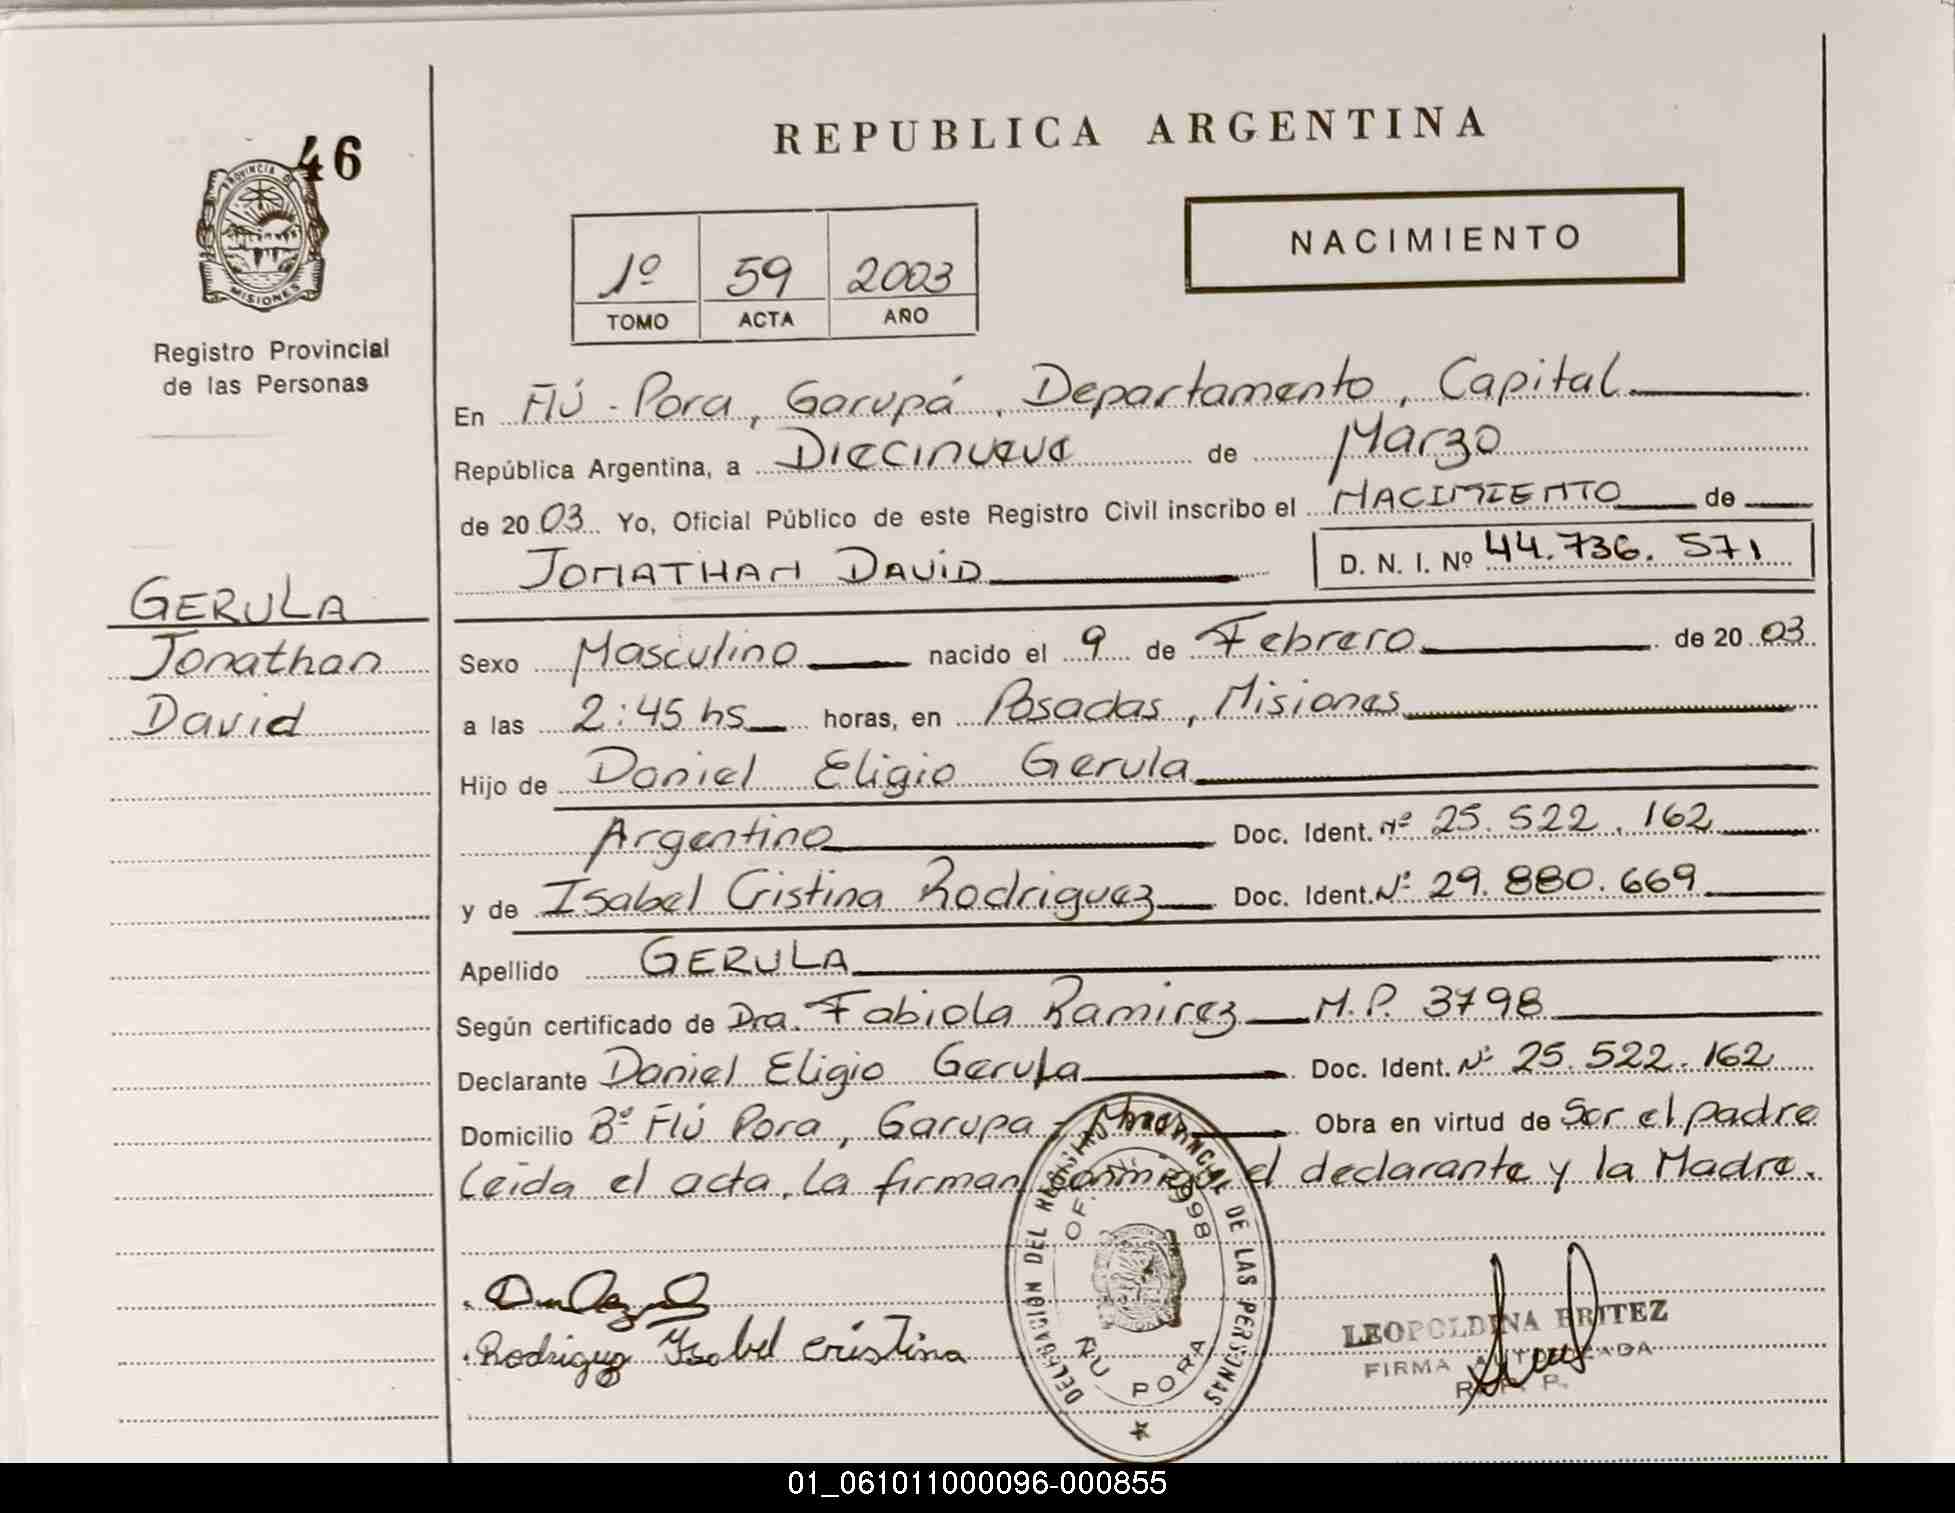 46
PROVINCIA DE
MISIONES
Registro Provincial
de las Personas
REPUBLICA ARGENTINA
NACIMIENTO
1º 59 2003
TOMO ACTA AÑO
En Ñú - Pora, Garupá, Departamento, Capital
República Argentina, a Diecinueve de Marzo
de 2003 Yo, Oficial Público de este Registro Civil inscribo el NACIMIENTO de
JONATHAN DAVID D. N. I. Nº 44.736.571
GERULA
Jonathan
David
Sexo Masculino nacido el 9 de Febrero de 2003
a las 2:45 hs horas, en Posadas, Misiones
Hijo de Daniel Eligio Gerula
Argentino Doc. Ident. Nº 25.522.162
y de Isabel Cristina Rodriguez Doc. Ident. Nº 29.880.669
Apellido GERULA
Según certificado de Dra. Fabiola Ramirez M.P. 3798
Declarante Daniel Eligio Gerula Doc. Ident. Nº 25.522.162
Domicilio Bº Ñú Pora, Garupa - Obra en virtud de Ser el padre
Leida el acta, la firman conmigo el declarante y la Madre.
Rodriguez Isabel Cristina
DELEGACIÓN DEL REGISTRO PROVINCIAL DE LAS PERSONAS
OF. 998
ÑU PORA
LEOPOLDINA BRITEZ
FIRMA AUTORIZADA
R. P. P.
01_061011000096-000855